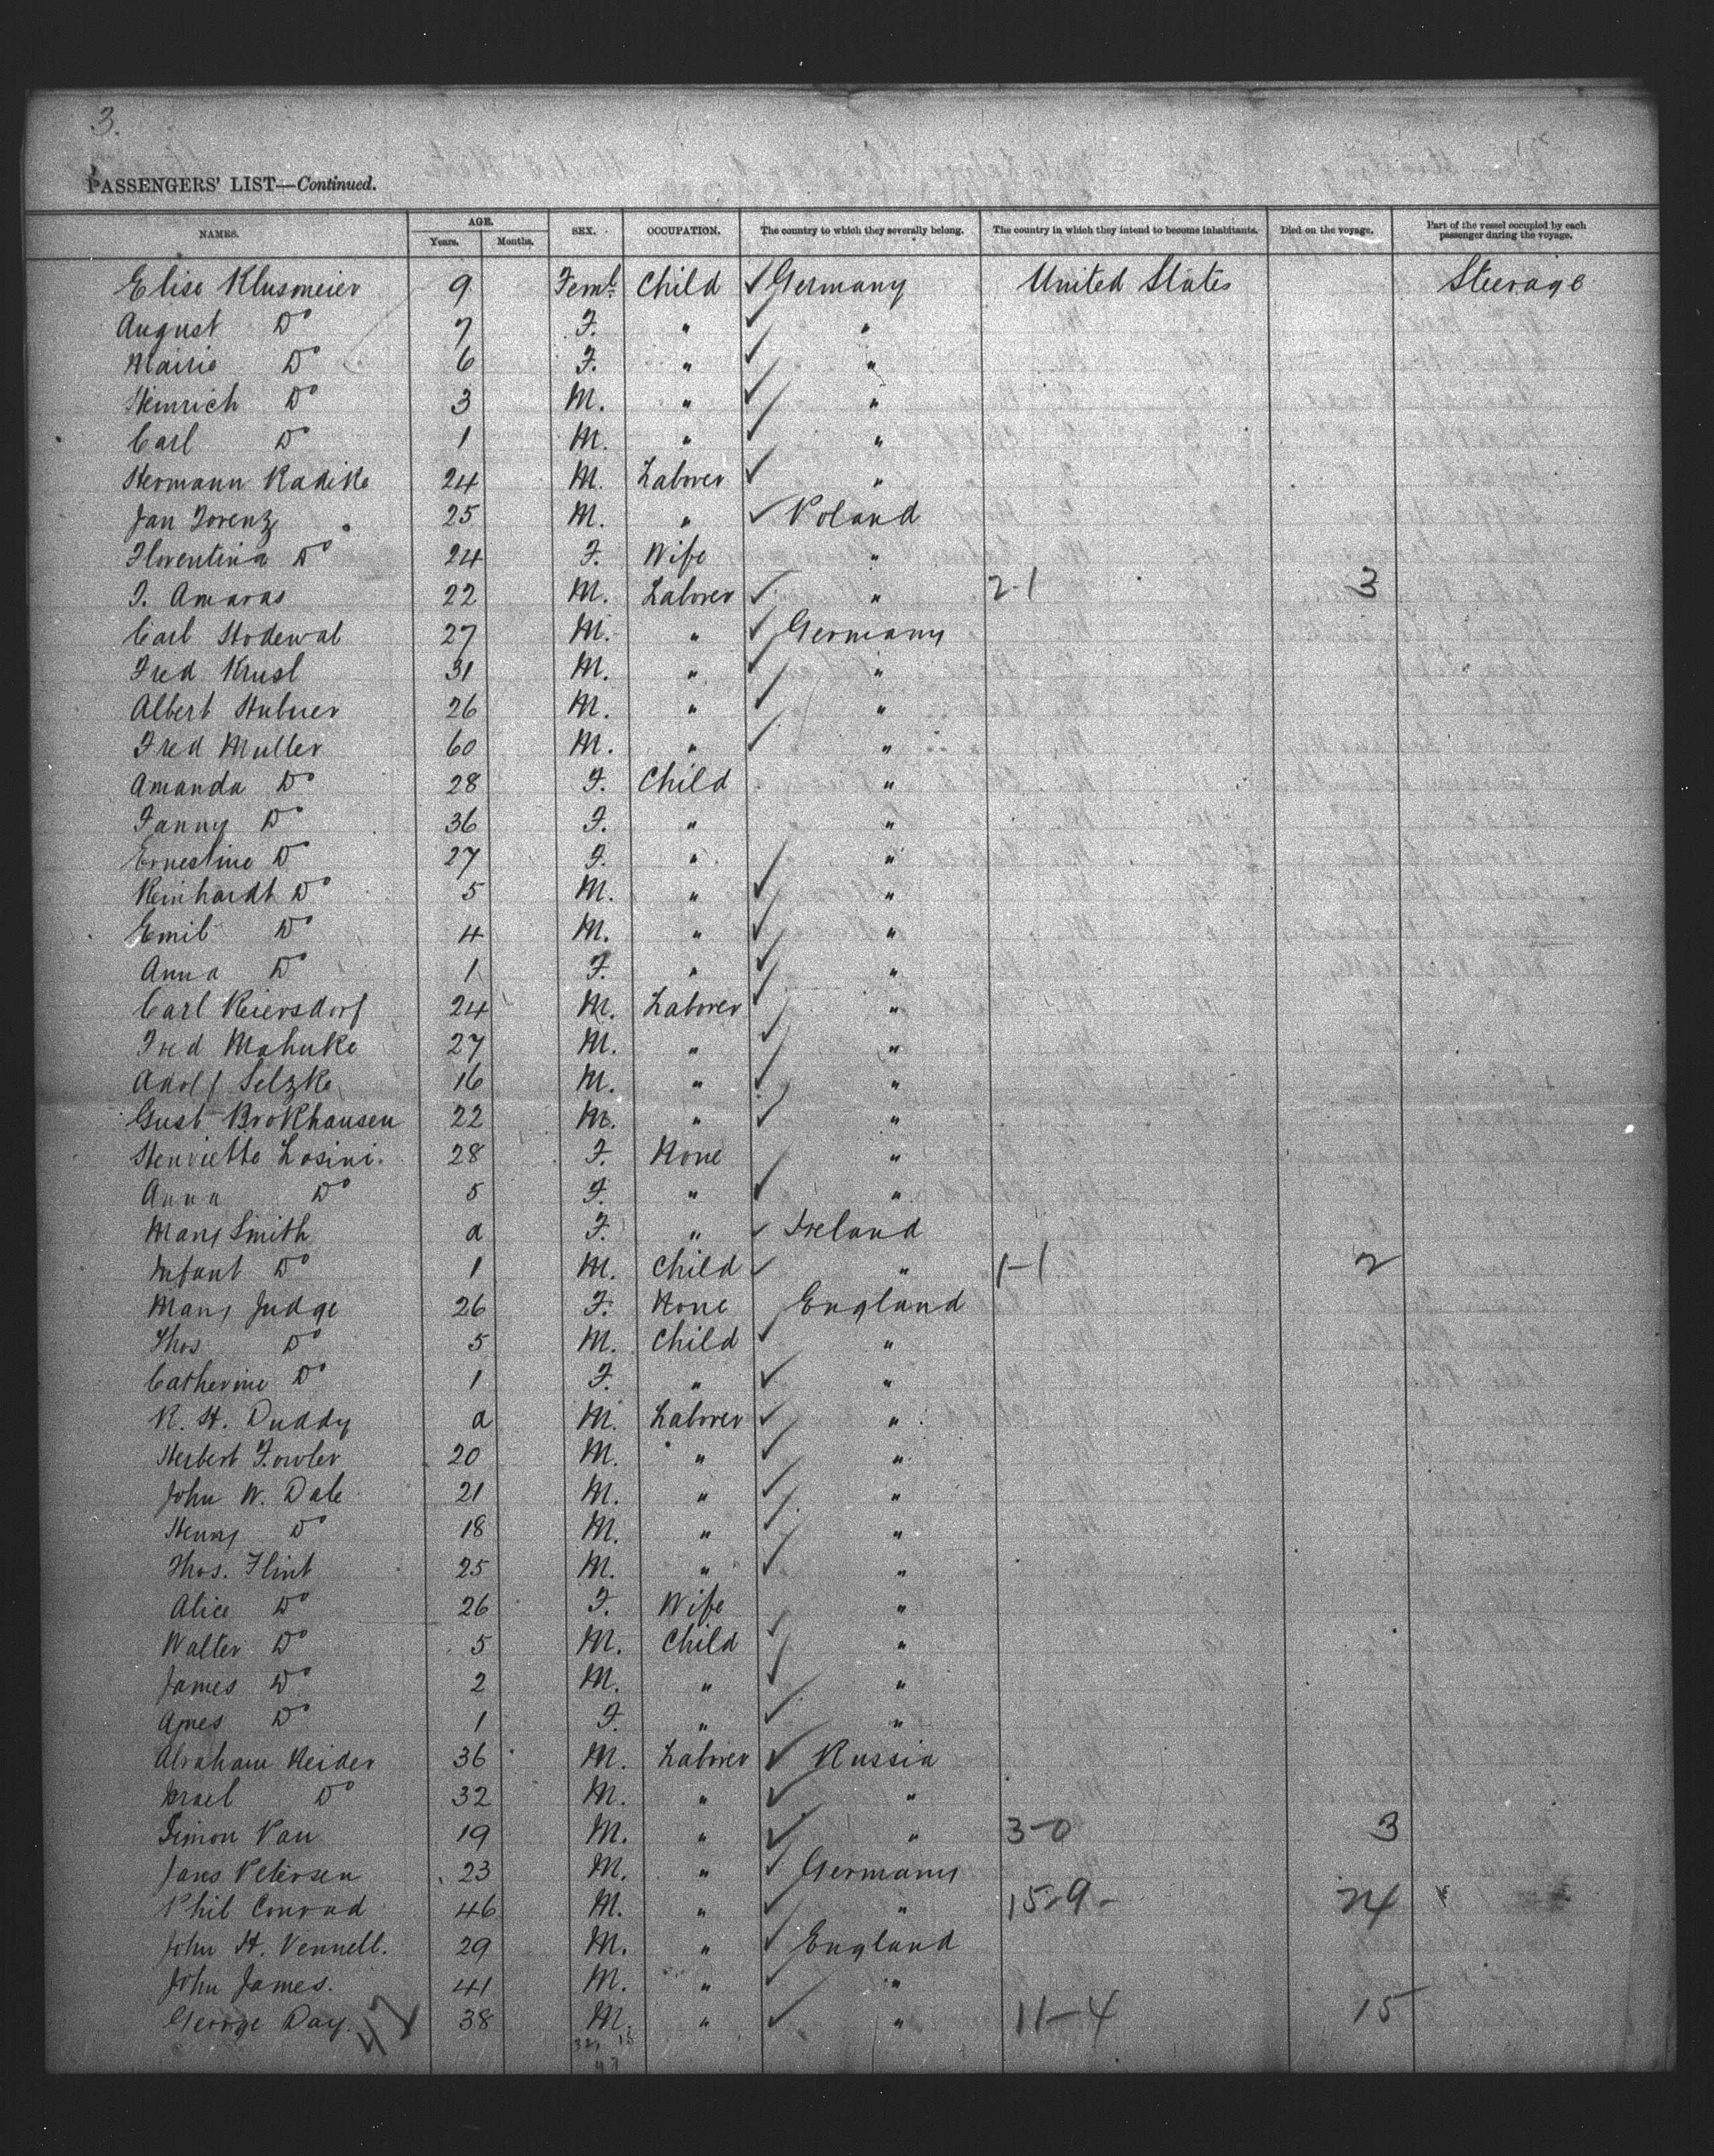 3.
PASSENGERS' LIST—Continued.
NAMES. AGE. Years. Months. SEX. OCCUPATION. The country to which they severally belong. The country in which they intend to become inhabitants. Died on the voyage. Part of the vessel occupied by each passenger during the voyage.
Elise Klusmeier 9 Feml. Child ✓ Germany United States Steerage
August Do 7 F. " ✓ "
Mairie Do 6 F. " ✓ "
Heinrich Do 3 M. " ✓ "
Carl Do 1 M. " ✓ "
Hermann Radike 24 M. Laborer ✓ "
Jan Lorenz 25 M. " ✓ Poland
Florentina Do 24 F. Wife "
J. Amaras 22 M. Laborer ✓ " 2-1 3
Carl Hodewal 27 M. " ✓ Germany
Fred Krusl 31 M. " ✓ "
Albert Hubner 26 M. " ✓ "
Fred Muller 60 M. " ✓ "
Amanda Do 28 F. Child "
Fanny Do 36 F. " "
Ernestine Do 27 F. " ✓ "
Reinhardt Do 5 M. " ✓ "
Emil Do 4 M. " ✓ "
Anna Do 1 F. " ✓ "
Carl Reiersdorf 24 M. Laborer ✓ "
Fred Mahnke 27 M. " ✓ "
Adolf Selzke 16 M. " ✓ "
Gust Brokhausen 22 M. " ✓ "
Henriette Losini. 28 F. None "
Anna Do 5 F. " ✓ "
Mary Smith a F. " ✓ Ireland
Infant Do 1 M. Child ✓ " 1-1 2
Mary Judge 26 F. None England
Thos Do 5 M. Child ✓ "
Catherine Do 1 F. " ✓ "
R. H. Duddy a M. Laborer ✓ "
Herbert Fowler 20 M. " ✓ "
John W. Dale 21 M. " ✓ "
Henry Do 18 M. " ✓ "
Thos. Flint 25 M. " ✓ "
Alice Do 26 F. Wife "
Walter Do 5 M. Child ✓ "
James Do 2 M. " ✓ "
Agnes Do 1 F. " ✓ "
Abraham Reider 36 M. Laborer ✓ Russia
Israel Do 32 M. " ✓ "
Simon Pau 19 M. " ✓ " 3-0 3
Jans Petersen 23 M. " ✓ Germany
Phil Conrad 46 M. " ✓ " 15-9- 24
John H. Vennell. 29 M. " ✓ England
John James. 41 M. " ✓ "
George Day. 38 M. " ✓ " 11-4 15
47
32, 15
47